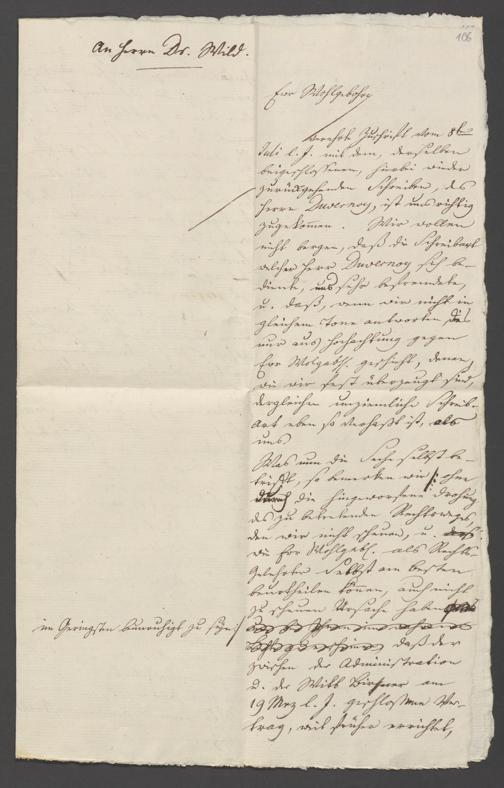 106
An Herrn Dr. Wild.
Euer Wohlgebohrn
verehrte Zuschrift vom 8t
Juli l. J. mit dem, derselben
beigeschlossenen, hierbei wieder
zurückgehenden Schreiben, des
Herrn Duvernoy, ist uns richtig
zugekommen. Wir wollen
nicht bergen, daß die Schreibart
welcher Herr Duvernoy sich be-
diente, uns sehr befremdete,
u. daß, wenn wir nicht in
gleichem Tone antworten, dies
nur aus Hochachtung gegen
Euer Wolgeb. geschieht, denen,
wie wir fest überzeugt sind,
dergleichen unziemliche Schreib-
Art eben so verhaßt ist, als
uns
Was nun die Sache selbst be-
trifft, so bemerken wir, ohne
durch die hingeworfene Drohung
des zu betretenden Rechtsweges,
den wir nicht scheuen, u.
wie Euer Wohlgeb. als Rechts
Gelehrter Selbst am besten
beurtheilen können, auch nicht
zu scheuen Ursache haben
im Geringsten beunruhigt zu seyn
daß der
zwischen der Administration
u. der Witb am
19 Merz l. J. geschlossene Ver-
trag, weit früher errichtet,